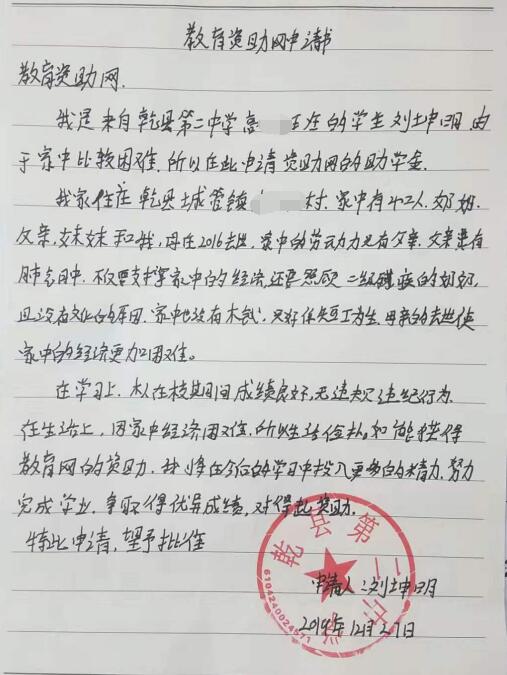 教育资助网申请书
教育资助网.
我是来自乾县第二中学高 班的学生刘坤明.由
于家中比较困难.所以在此申请资助网的助学金.
我家住在乾县城管镇 村.家中有 口人.奶奶.
父亲,妹妹和我,母在2016去世,家中的劳动力只有父亲.父亲患有
不仅要支撑家中的经济,还要照顾二级残疾的奶奶,
且没有文化的原因.家中也没有 ,只好 工为生.母亲的去世使
家中的经济更加困难。
在学习上.本人在校期间成绩良好,无违 违纪行为.
在生活上,因家中经济困难.所以生活俭朴,如能获得
教育网的资助.我将在今后的学习中投入更多的精力.努力
完成学业.争取得优异成绩,对得起资助.
特此申请,望予批准
申请人:刘坤明
2019年12月27日
乾县第二中学
6104240024571